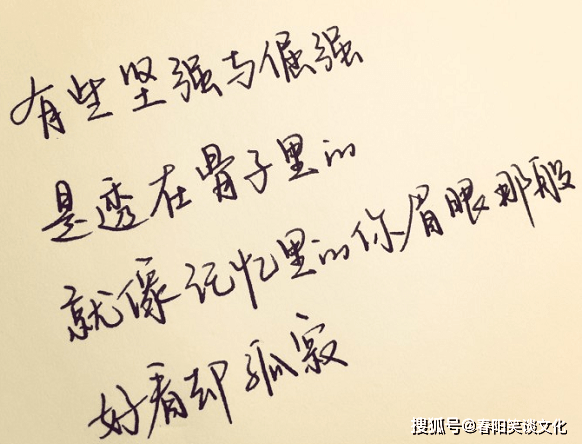 有些坚强与倔强
是透在骨子里的
就像记忆里的你眉眼那般
好看却孤寂
搜狐号@春阳笑谈文化